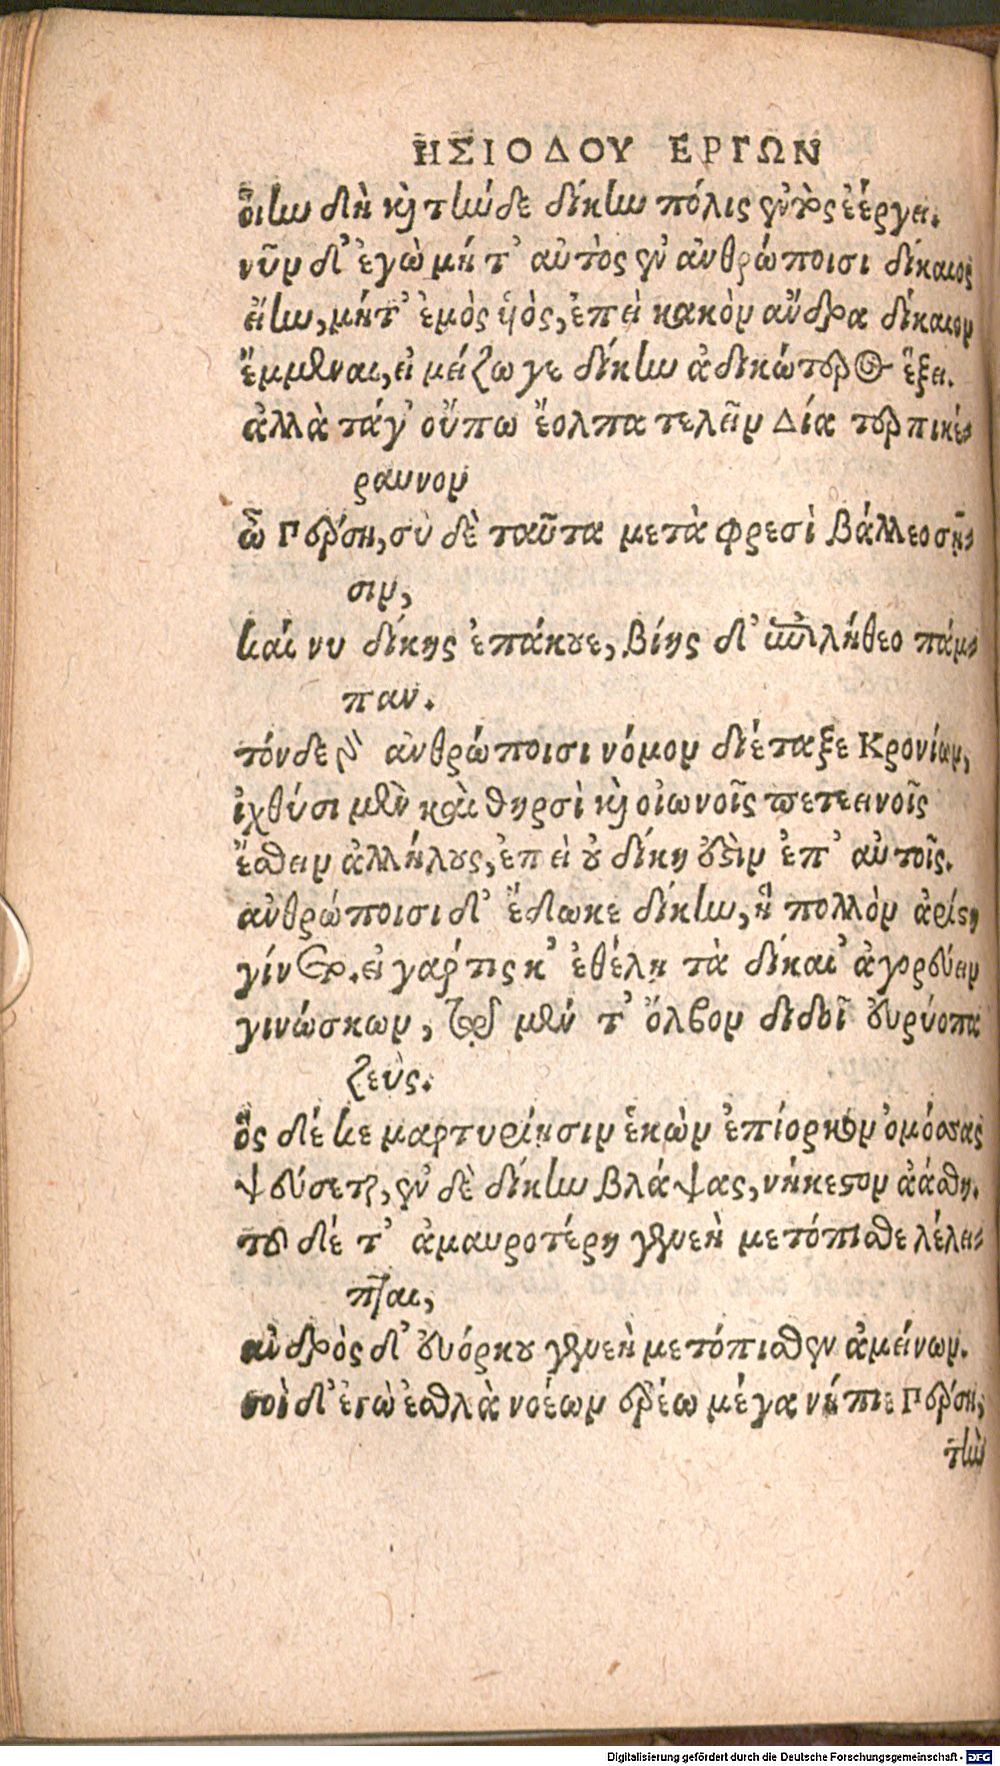 ΗΣΙΟΔΟΥ ΕΡΓΩΝ
οἵην δὴ καὶ τήνδε δίκην πόλις ἐντὸς ἐέργει.
νῦν δ' ἐγὼ μήτ' αὐτὸς ἐν ἀνθρώποισι δίκαιος
εἴην, μήτ' ἐμὸς υἱὸς, ἐπεὶ κακὸν ἄνδρα δίκαιον
ἔμμεναι, εἰ μείζω γε δίκην ἀδικώτερος ἕξει.
ἀλλὰ τάγ' οὔπω ἔολπα τελεῖν Δία τερπικέ-
ραυνον
ὦ Πέρση, σὺ δὲ ταῦτα μετὰ φρεσὶ βάλλεο σῇ-
σιν,
καί νυ δίκης ἐπάκουε, βίης δ' ἐπιλήθεο πάμ-
παν.
τόνδε γὰρ ἀνθρώποισι νόμον διέταξε Κρονίων,
ἰχθύσι μὲν καὶ θηρσὶ καὶ οἰωνοῖς πετεεινοῖς
ἔσθειν ἀλλήλους, ἐπεὶ οὐ δίκη ἐστὶν ἐπ' αὐτοῖς.
ἀνθρώποισι δ' ἔδωκε δίκην, ἣ πολλὸν ἀρίστη
γίνεται. εἰ γάρ τις κ' ἐθέλῃ τὰ δίκαι' ἀγορεύειν
γινώσκων, τῷ μέν τ' ὄλβον διδοῖ εὐρύοπα
ζεύς.
ὃς δέ κε μαρτυρίῃσιν ἑκὼν ἐπίορκον ὀμόσσας
ψεύσεται, ἐν δὲ δίκην βλάψας, νήκεστον ἀάσθη.
τοῦ δέ τ' ἀμαυροτέρη γενεὴ μετόπισθε λέλει-
πται,
ἀνδρὸς δ' εὐόρκου γενεὴ μετόπισθεν ἀμείνων.
σοὶ δ' ἐγὼ ἐσθλὰ νοέων ἐρέω μέγα νήπιε Πέρση,
τὴν
Digitalisierung gefördert durch die Deutsche Forschungsgemeinschaft - DFG